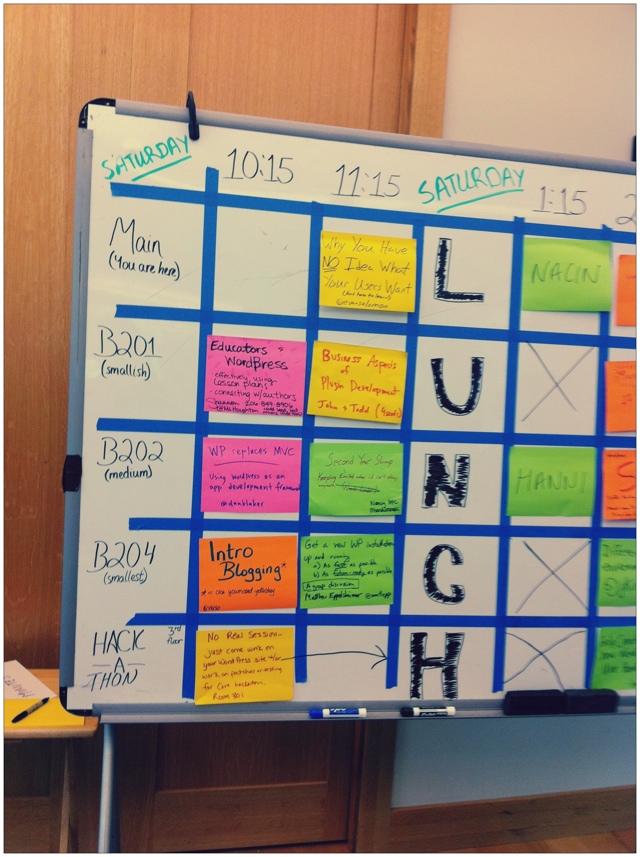 SATURDAY
10:15
11:15
SATURDAY
1:15
2
Main
(You are here)
Why You Have
NO Idea What
Your Users Want
@evansolomon
L
NACIN
B201
(smallish)
Educators &
WordPress
- effectively using
Lesson plans
- connecting w/authors
Business Aspects
of
Plugin Development
John & Todd
U
B202
(medium)
WP replaces MVC
Using WordPress as an
app development framework
Second Year Slump
N
HANNI
S
B204
(smallest)
Intro
Blogging*
Get a new WP installation
up and running
a) As fast as possible
b) As future-ready as possible
A group discussion
C
HACK
- A -
THON
3rd
floor
No Real Session...
Just come work on
your WordPress site &/or
work on patches or testing
for Core hackathon.
Room 301
H